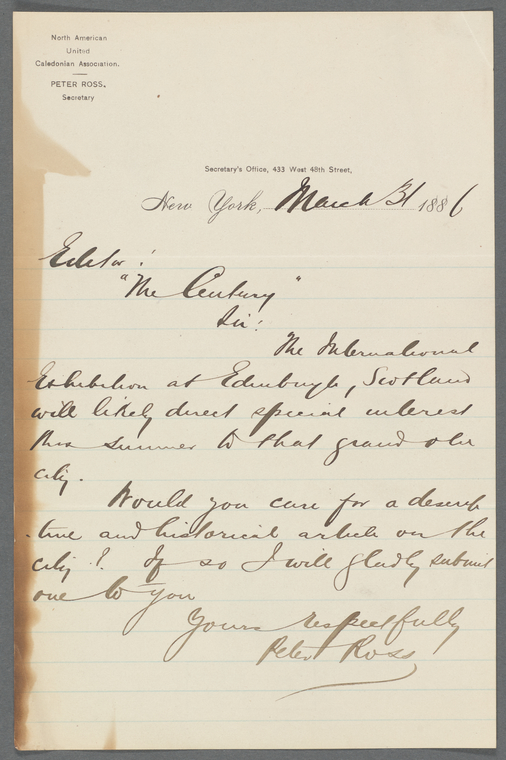 North American
United
Caledonian Association.
PETER ROSS,
Secretary
Secretary's Office, 433 West 48th Street,
New York, March 31 1886
Editor!
"The Century"
Sir:
The International
Exhibition at Edinburgh, Scotland
will likely direct special interest
this summer to that grand old
city.
Would you care for a descrip
-tive and historical article on the
city? If so I will gladly submit
one to you
Yours respectfully
Peter Ross